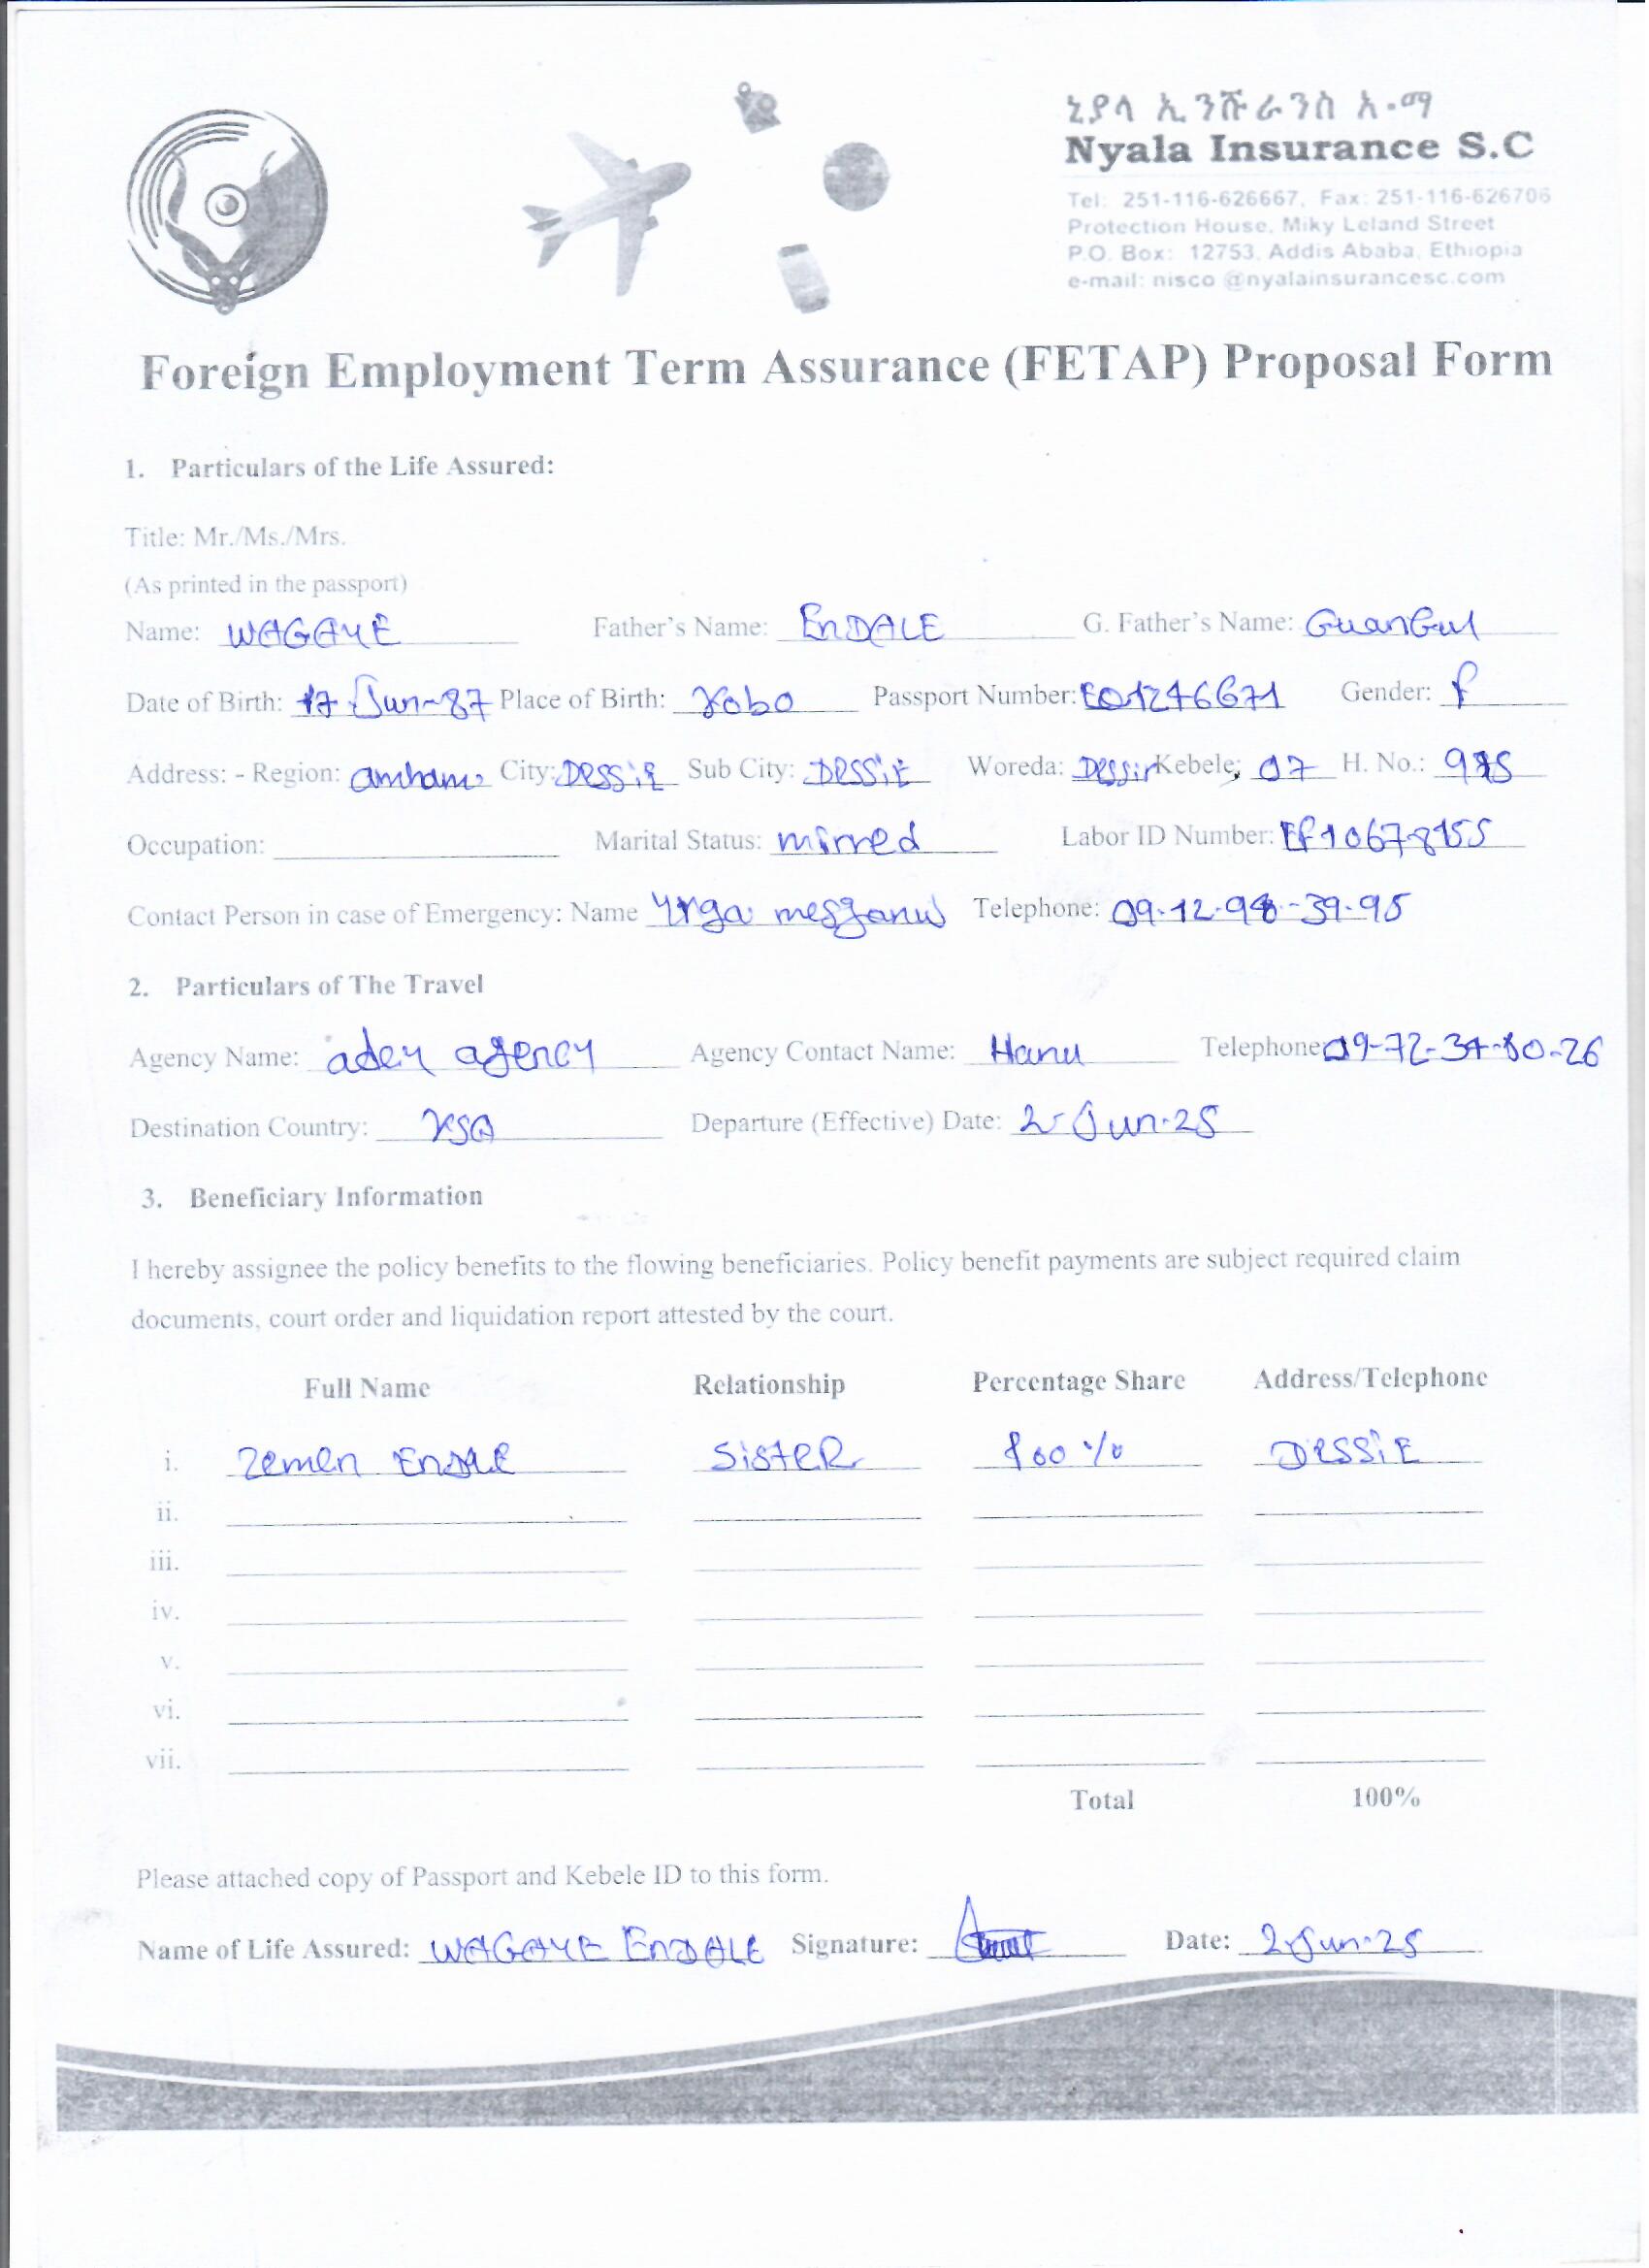 ኒያላ ኢንሹራንስ አ.ማ
Nyala Insurance S.C
Tel: 251-116-626667, Fax: 251-116-626706
Protection House, Miky Leland Street
P.O. Box: 12753, Addis Ababa, Ethiopia
e-mail: nisco @nyalainsurancesc.com
Foreign Employment Term Assurance (FETAP) Proposal Form
1. Particulars of the Life Assured:
Title: Mr./Ms./Mrs.
(As printed in the passport)
Name: WAGAYE Father's Name: EnDALE G. Father's Name: GuanGul
Date of Birth: 17-Jun-87 Place of Birth: Kobo Passport Number: EQ1246671 Gender: f
Address: - Region: amhara City: DESSiE Sub City: DESSiE Woreda: Kebele; 07 H. No.:
Occupation: Marital Status: mirred Labor ID Number: EF10678155
Contact Person in case of Emergency: Name Yrga mesganw Telephone:
2. Particulars of The Travel
Agency Name: adey agency Agency Contact Name: Hanu Telephone:
Destination Country: KSA Departure (Effective) Date: 2-Jun-25
3. Beneficiary Information
I hereby assignee the policy benefits to the flowing beneficiaries. Policy benefit payments are subject required claim
documents, court order and liquidation report attested by the court.
Full Name Relationship Percentage Share Address/Telephone
i. Zemen EnDALE SisteR 100 % DESSiE
ii.
iii.
iv.
v.
vi.
vii.
Total 100%
Please attached copy of Passport and Kebele ID to this form.
Name of Life Assured: WAGAYE EnDALE Signature: Date: 2-Jun-25